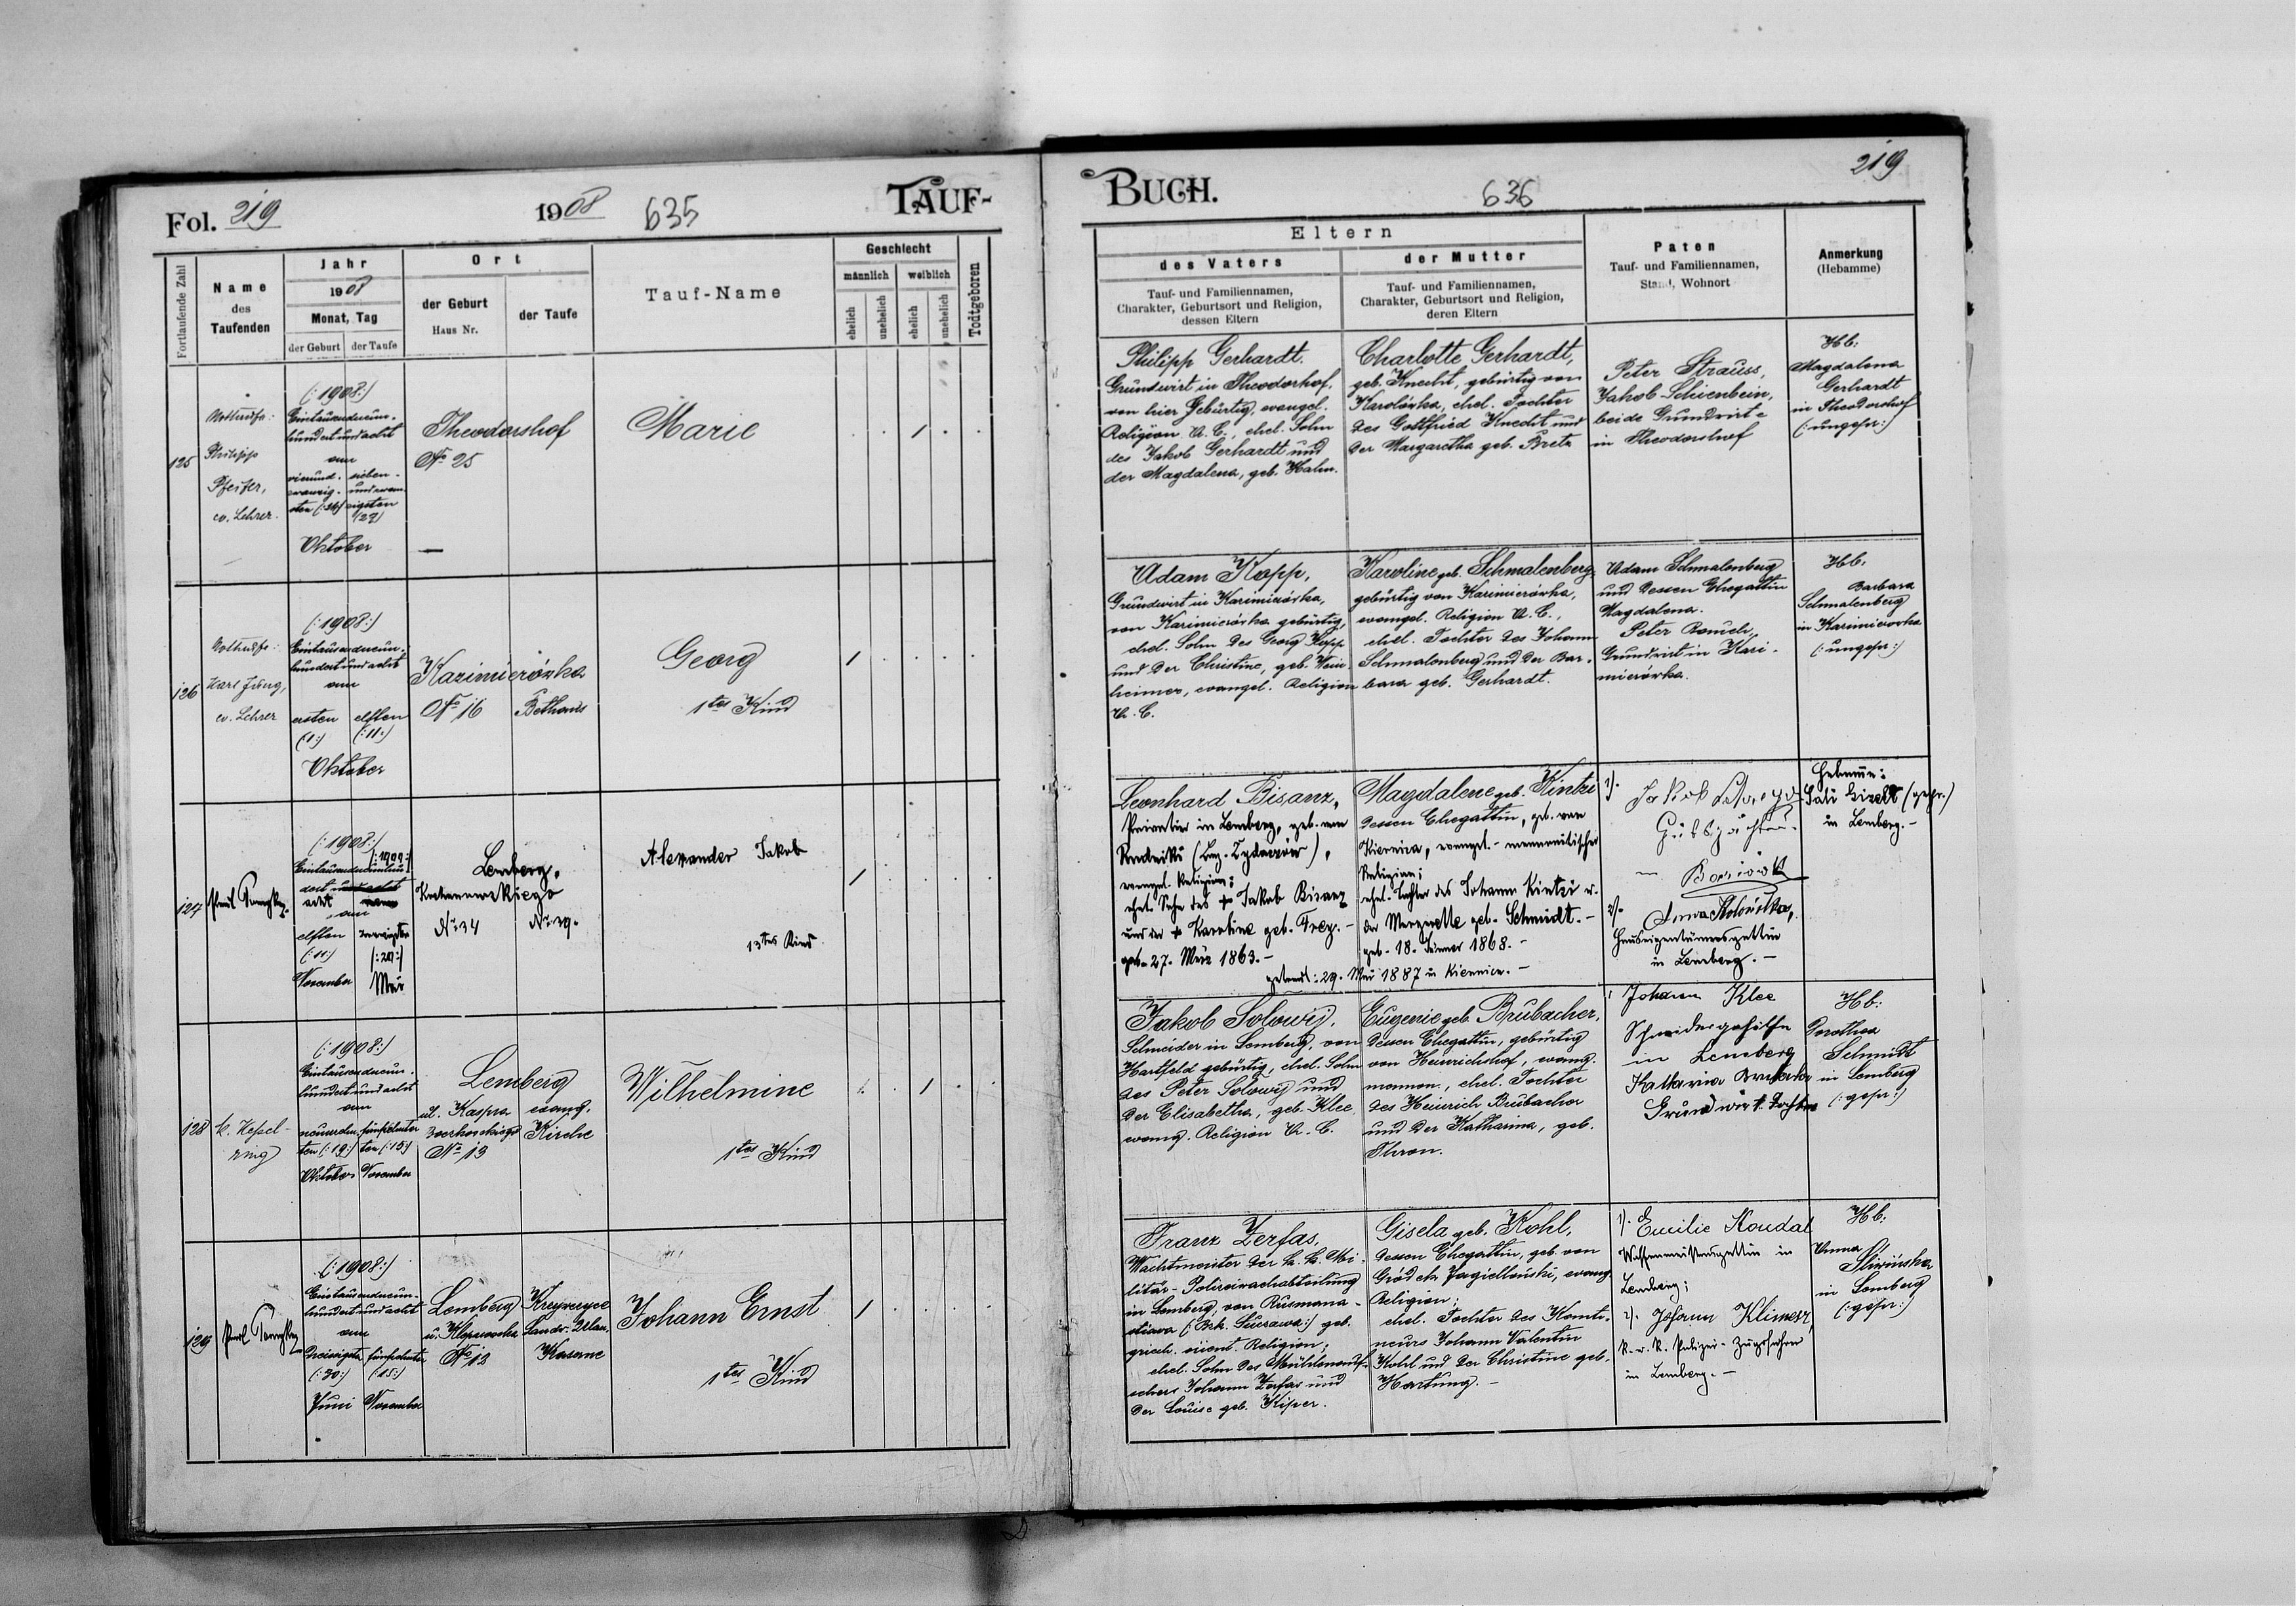 Fol. 219
1908
635
TAUF-
Fortlaufende Zahl
Name
des
Taufenden
Jahr
1908
Monat, Tag
der Geburt
der Taufe
Ort
der Geburt
Haus Nr.
der Taufe
Tauf-Name
Geschlecht
männlich
weiblich
ehelich
unehelich
ehelich
unehelich
Todtgeboren
125
Nottaufe:
Philipp
Pfeifer,
ev. Lehrer.
(:1908:)
Eintausendneun-
hundert und acht
am
vierund-
zwanzig-
sten (:24:)
sieben-
und zwan-
zigsten
(27)
Oktober
Theodorshof
No 25
Marie
126
Nottaufe:
Karl Jung,
ev. Lehrer
(:1908:)
Eintausendneun-
hundert und acht
am
ersten
(:1:)
elften
(:11:)
Oktober
Kazimierówka
No 16
Bethaus
Georg
1tes Kind
127
(:1908:)
(:1909:)
acht
am
elften
(:11:)
November
Mai
Lemberg,
Kochanowskiego
No 34
No 39.
Alexander Jakob
13tes Kind
128
(:1908:)
Eintausendneun-
hundert und acht
am
neunzehn-
ten (:19:)
fünfzehn-
ten (:15:)
Oktober
November
Lemberg
ul. Kaspra
No 13
evang.
Kirche
Wilhelmine
1tes Kind
129
(:1908:)
Eintausendneun-
hundert und acht
am
Dreissigsten
(:30:)
fünfzehnten
(:15:)
Juni
November
Lemberg
No 12
Kaserne
Johann Ernst
1tes Kind
BUCH.
636
219
Eltern
des Vaters
Tauf- und Familiennamen,
Charakter, Geburtsort und Religion,
dessen Eltern
der Mutter
Tauf- und Familiennamen,
Charakter, Geburtsort und Religion,
deren Eltern
Paten
Tauf- und Familiennamen,
Stand, Wohnort
Anmerkung
(Hebamme)
Philipp Gerhardt.
Grundwirt in Theodorshof,
von hier gebürtig, evangel.
Religion A. C., ehel. Sohn
des Jakob Gerhardt und
der Magdalena, geb. Hahn.
Charlotte Gerhardt,
geb. Knecht, gebürtig von
Karolówka, ehel. Tochter
des Gottfried Knecht und
der Margaretha geb. Bretz
Peter Strauss,
Jakob Schienbein,
beide Grundwirte
in Theodorshof
Hb:
Magdalena
Gerhardt
in Theodorshof
(:ungepr:)
Adam Kopp,
Grundwirt in Kazimierówka,
von Kazimierówka gebürtig,
ehel. Sohn des Georg Kopp
und der Christine, geb. Wein-
heimer, evangel. Religion
A. C.
Karoline geb. Schmalenberg,
gebürtig von Kazimierówka,
evangel. Religion A. C.,
ehel. Tochter des Johann
Schmalenberg und der Bar-
bara geb. Gerhardt.
Adam Schmalenberg
und dessen Ehegattin
Magdalena.
Peter Rauch,
Grundwirt in Kazi-
mierówka.
Hb.
Barbara
Schmalenberg
in Kazimierówka
(:ungepr:)
Leonhard Bisanz,
Privatier in Lemberg, geb. von
evangel. Religion;
ehel. Sohn des + Jakob Bisanz
und der + Karoline geb. Frey. -
geb. 27. März 1863. -
Magdalene geb. Kintzi
dessen Ehegattin, geb. von
Kiernica, evangel.-mennonitischer
Religion;
ehel. Tochter des Johann Kintzi u.
der geb. Schmidt. -
geb. 18. Jänner 1868. -
getraut: 29. Mai 1887 in Kiernica. -
1).
Jakob
Gutspächter
2).
Anna
Hauseigentümersgattin
in Lemberg. -
Hebamme:
(gepr.)
in Lemberg. -
Jakob Solowij,
Schneider in Lemberg, von
Hartfeld gebürtig, ehel. Sohn
des Peter Solowij und
der Elisabetha, geb. Klee,
evang. Religion A. C.
Eugenie geb. Brubacher,
dessen Ehegattin, gebürtig
von Heinrichshof, evang.
mennon., ehel. Tochter
des Heinrich Brubacher
und der Katharina, geb.
Thron.
Johann Klee
Schneidergehilfe
in Lemberg
Katharina
Grundwirt. Tochter
Hb:
Dorothea
Schmidt
in Lemberg
(:gepr:)
Franz Zerfas,
Wachtmeister der k. k. Mi-
litär-Polizeiwachabteilung
in Lemberg, von
geb.
griech. orient. Religion;
ehel. Sohn des
Johann Zerfas und
der Louise geb. Kiper.
Gisela geb. Kohl,
dessen Ehegattin, geb. von
Gródek Jagielloński, evang.
Religion;
ehel. Tochter des
Johann Valentin
Kohl und der Christine geb.
Hartung. -
1). Emilie Koudal
in
Lemberg;
2). Johann Klimesz
k. u. k. Polizei-Zugsführer
in Lemberg. -
Hb:
Anna
Śliwińska
in Lemberg
(:gepr:)